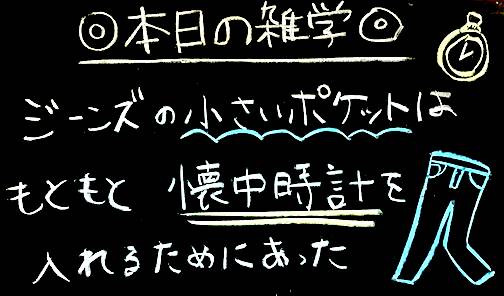 ◎本日の雑学◎
ジーンズの小さいポケットは
もともと 懐中時計を
入れるためにあった